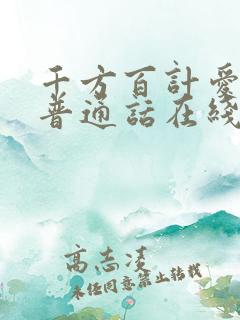 千方百計愛
普通話在綫
高志凌
未经同意禁止转载